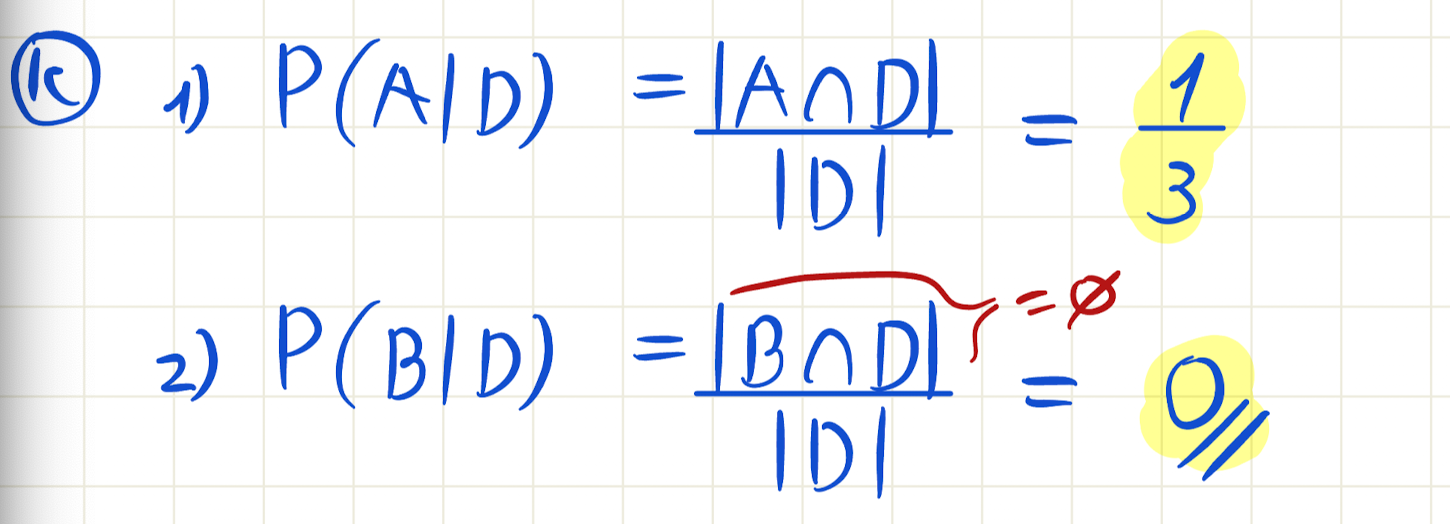 (k) 1) P(A|D) = |A∩D| / |D| = 1/3
2) P(B|D) = |B∩D| / |D| = 0
= ∅